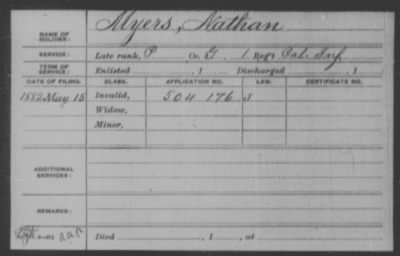 NAME OF SOLDIER: Myers, Nathan
SERVICE: Late rank, P Co. G, 1 Reg't Cal. Inf.
TERM OF SERVICE: Enlisted , 1 Discharged , 1
DATE OF FILING. CLASS. APPLICATION NO. LAW. CERTIFICATE NO.
1882 May 15 Invalid, 504 176
Widow,
Minor,
ADDITIONAL SERVICES:
REMARKS:
Died , 1 , at